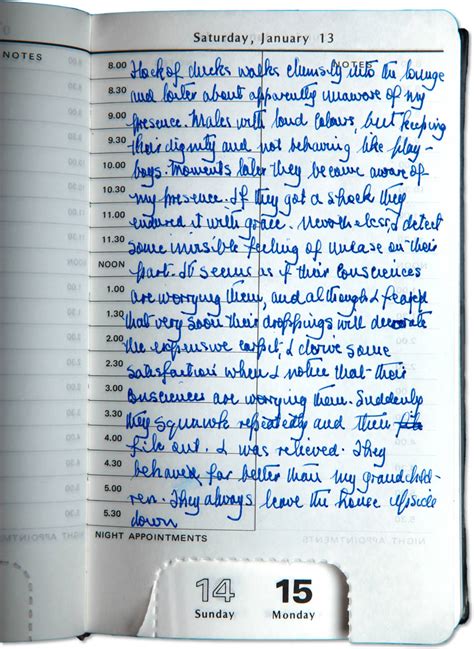 Saturday, January 13
NOTES
NOTES
8.00 Flock of ducks walks clumsily into the lounge
8.30 and loiter about apparently unaware of my
9.00 presence. Males with loud colours, but keeping
9.30 their dignity and not behaving like play-
10.00 boys. Moments later they become aware of
10.30 my presence. If they got a shock they
11.00 endured it with grace. Nevertheless, I detect
11.30 some invisible feeling of unease on their
NOON part. It seems as if their consciences
1.00 are worrying them, and although I feared
1.30 that very soon their droppings will decorate
2.00 the expensive carpet, I derive some
2.30 satisfaction when I notice that their
3.00 consciences are worrying them. Suddenly
3.30 they squawk repeatedly and then
4.00 file out. I was relieved. They
4.30 behaved far better than my grandchild-
5.00 ren. They always leave the house upside
5.30 down
NIGHT APPOINTMENTS
14 15
Sunday Monday